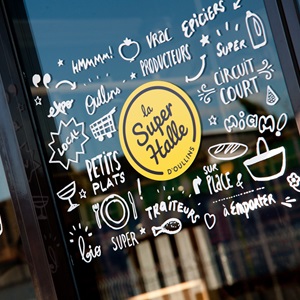 VRAC
EPICIERS
HMMMM!
PRODUCTEURS
SUPER
expo
Oullins
CIRCUIT
COURT
LOCAL
la
Super
Halle
D'OULLINS
MIAM!
PETITS
PLATS
SUR
PLACE &
à EMPORTER
TRAITEURS
bio
SUPER